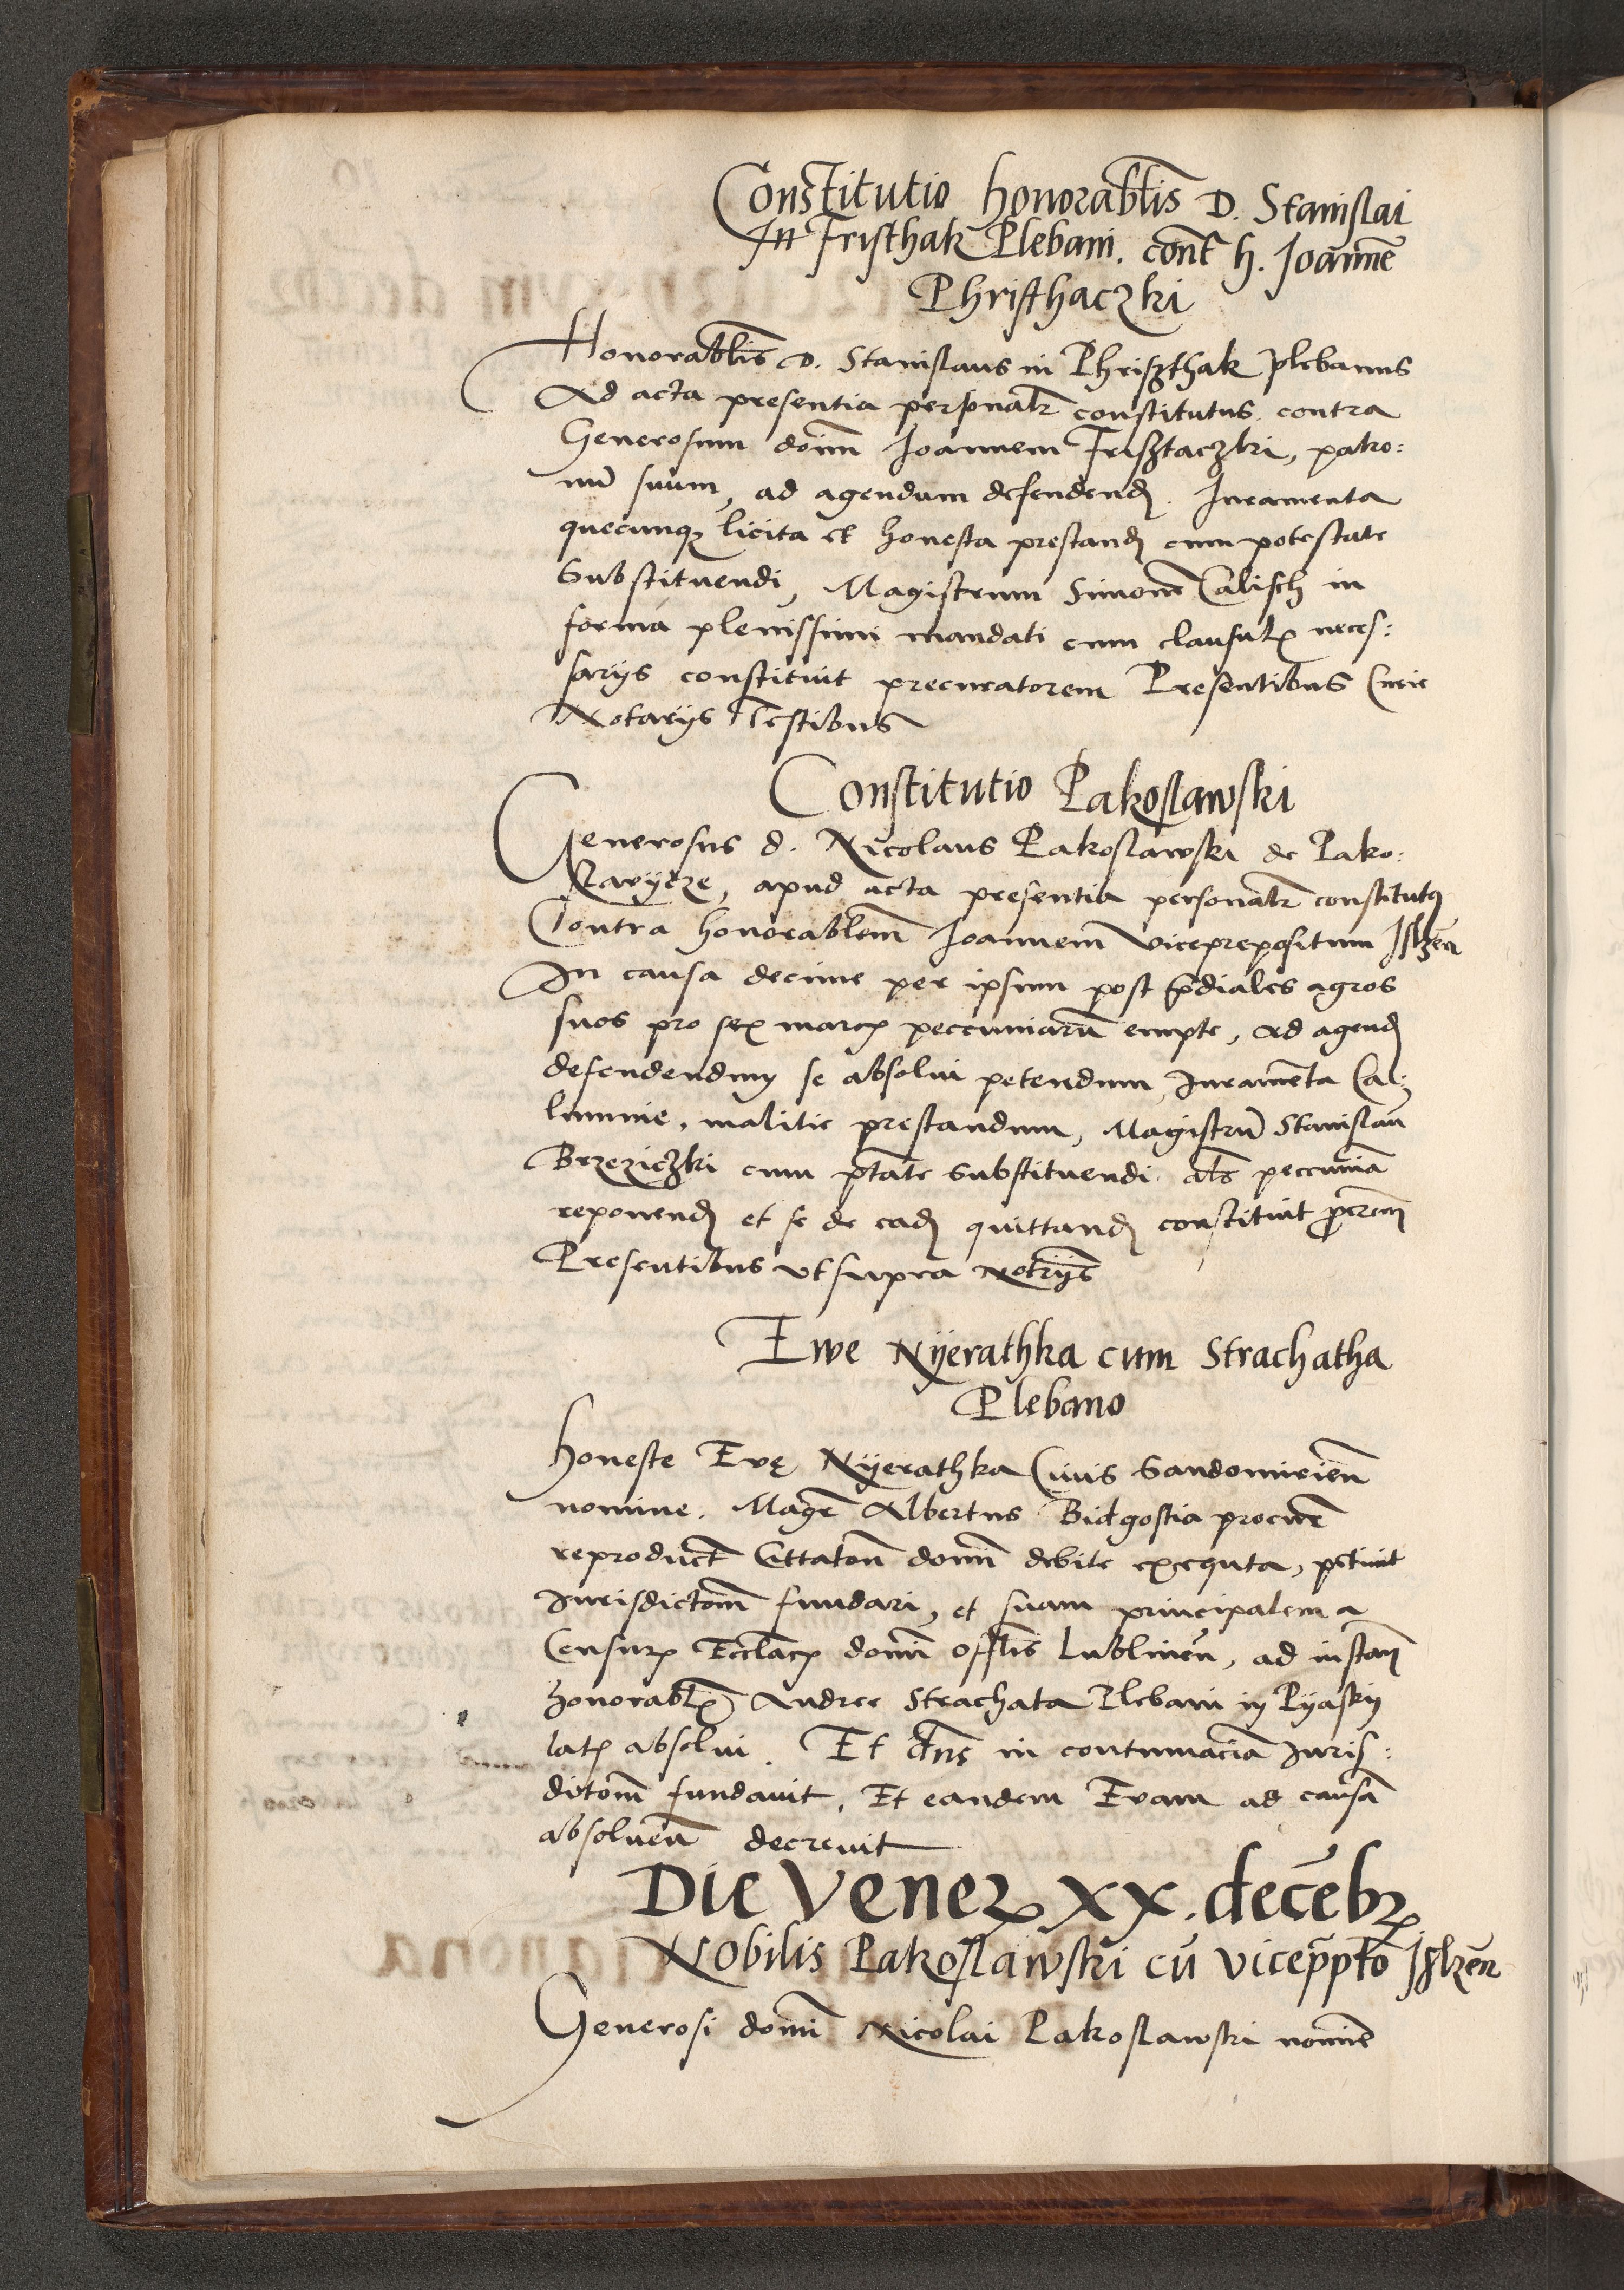 Constitutio honorablis D. Stanislai
In Fristhak Plebani. cont h. Joanne
Phristhaczki
Honorablis D. Stanislaus in Phriszthak plebanus
Ad acta presentia personalr constitutus contra
Generosum dom Joannem Frisztaczki, patro:
nu suum, ad agendum defendend. Juramenta
quecunq licita et honesta prestand cum potestate
Substituendi, Magistrum Simone Calisch in
forma plenissimi mandati cum clausul neces:
sarijs constituit procuratorem Presentibus Curie
Notarijs Testibus
Constitutio Pakoslawski
Generosus d. Nicolaus Pakoslawski de Pako:
, apud acta presentia personalr constitutus
Contra honorablem Joannem viceprepositum Jslzen
In causa decime per ipsum post pdiales agros
suos pro sex marc peccuniaru empte, ad agend
defendendum se absolui petendum, Juramenta Ca:
lumnie, malitie prestandum, Magistru Stanislau
Brzeziczki cum ptate substituendi als peccunia
reponend et se de ead quittand constituit procrem
Presentibus ut supra Notrijs
Ewe Nyerathka cum Strachatha
Plebano
Honeste Evę Nyerathka Civis Sandomirien
nomine. Magr Albertus Bidgostia procur
reproduct Cittaton domi debite exequta, petivit
Jurisdictom fundari, et suam principalem a
Censur Ecclac domi offlis Lublinen, ad instan
honorabl Andree Strachata Plebani in Pyasky
lat absolui. Et dns in contumacia Juris:
dictom fundavit. Et eandem Evam ad causa
absoluen decrevit
Die Vener xx. decebr
Nobilis Pakoslawski cu viceppto Jslzen
Generosi domi Nicolai Pakoslawski nomie